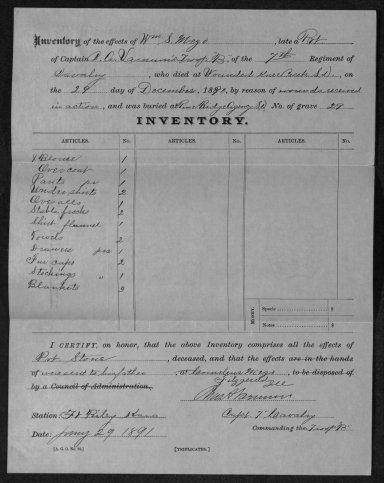 Inventory of the effects of Wm S. Mezo, late a Pvt
of Captain C. A. Varnum's Troop "B", of the 7th Regiment of
Cavalry, who died at Wounded Knee Creek S.d., on
the 29 day of December, 1890, by reason of wounds received
in action, and was buried at Pine Ridge Agency SD No. of grave 29
INVENTORY.
ARTICLES. No. ARTICLES. No. ARTICLES. No.
Blouse 1
Overcoat 1
Pants pr 1
Undershirts 2
Overalls 1
Stable frocks 2
Shirt flannel 1
Towels 2
Drawers prs 1
Fur caps 2
Stockings " 1
Blankets 2
MONEY.
Specie $
Notes $
I CERTIFY, on honor, that the above Inventory comprises all the effects of
Pvt, deceased, and that the effects are in the hands
of were sent to his father, at to be disposed of
by a Council of Administration. Ill
Station: Ft Riley Kans Capt 7" Cavalry
Date: Jany 29 1891 Commanding the Troop "B"
[A. G. O. No.] [TRIPLICATES.]